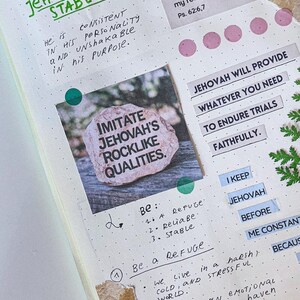 JEHO
STAB
HE IS CONSISTENT
IN HIS PERSONALITY
AND UNSHAKABLE
IN HIS PURPOSE.
my ro
Ps. 62:6,7
JEHOVAH WILL PROVIDE
WHATEVER YOU NEED
TO ENDURE TRIALS
FAITHFULLY.
IMITATE
JEHOVAH'S
ROCKLIKE
QUALITIES.
BE:
1. A REFUGE
2. RELIABLE
3. STABLE
I KEEP
JEHOVAH
BEFORE
ME CONSTAN
BECAUS
1 BE A REFUGE
- WE LIVE IN A HARSH,
COLD, AND STRESSFUL
WORLD.
AN EMOTIONAL
haven